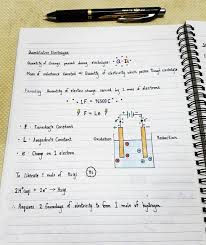 Quantitative Electrolysis
Quantity of charge passed during electrolysis : Q = It
Mass of substance liberated ∝ Quantity of electricity which passes through electrolyte
Faraday : Quantity of electric charge carried by 1 mole of electrons
∴ 1F = 96500 C
F = Le
F = Faraday's Constant
L = Avogadro's Constant
e = Charge on 1 electron
Oxidation
Reduction
To liberate 1 mole of H₂(g)
2H⁺(aq) + 2e⁻ → H₂(g)
∴ Requires 2 Faradays of electricity to form 1 mole of hydrogen